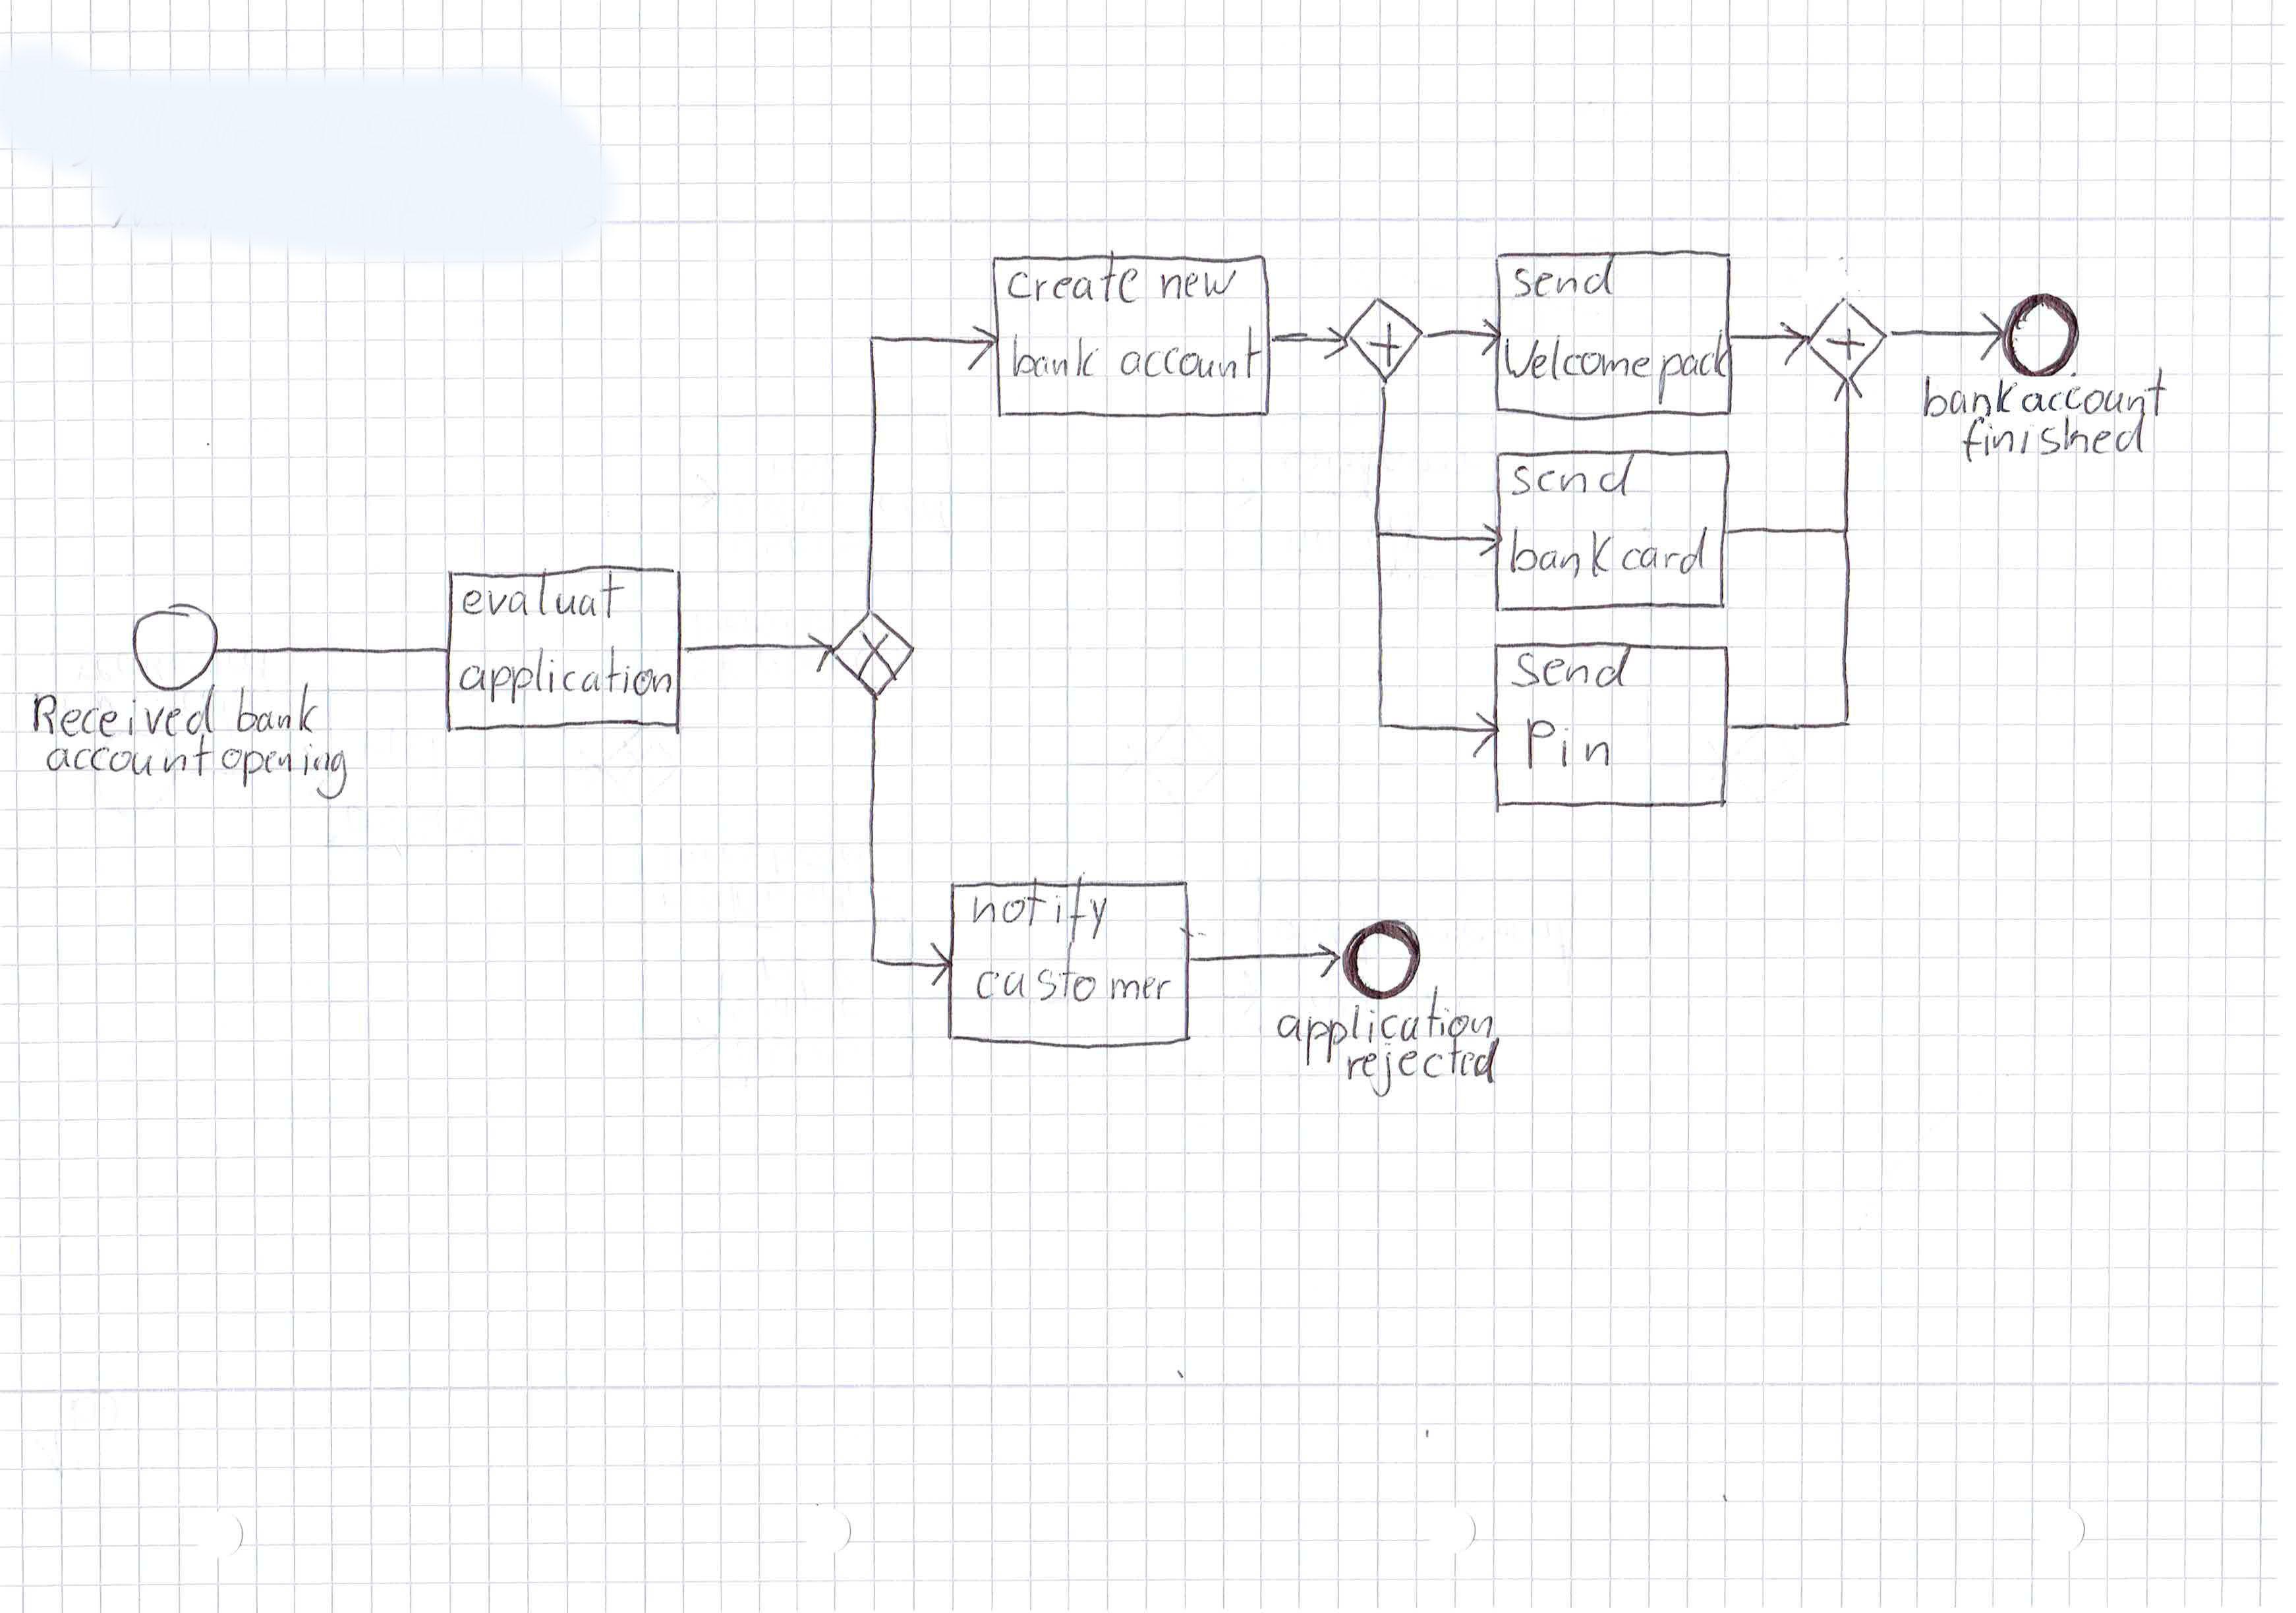 Received bank
account opening
evaluat
application
create new
bank account
send
Welcome pack
send
bank card
send
Pin
bank account
finished
notify
customer
application
rejected